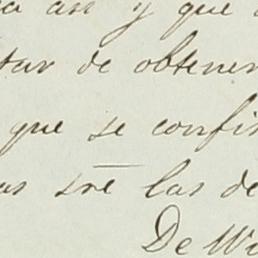 asi y que
tar de obtener
que se confir
as sre las de
De W